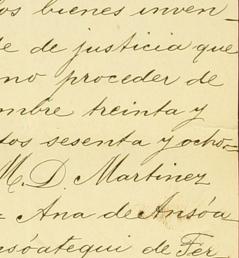 los bienes inven-
te de justicia que
no proceder de
mbre treinta y
tos sesenta y ocho=
M. D. Martinez
= Ana de Ansóa
nsóategui de Fer